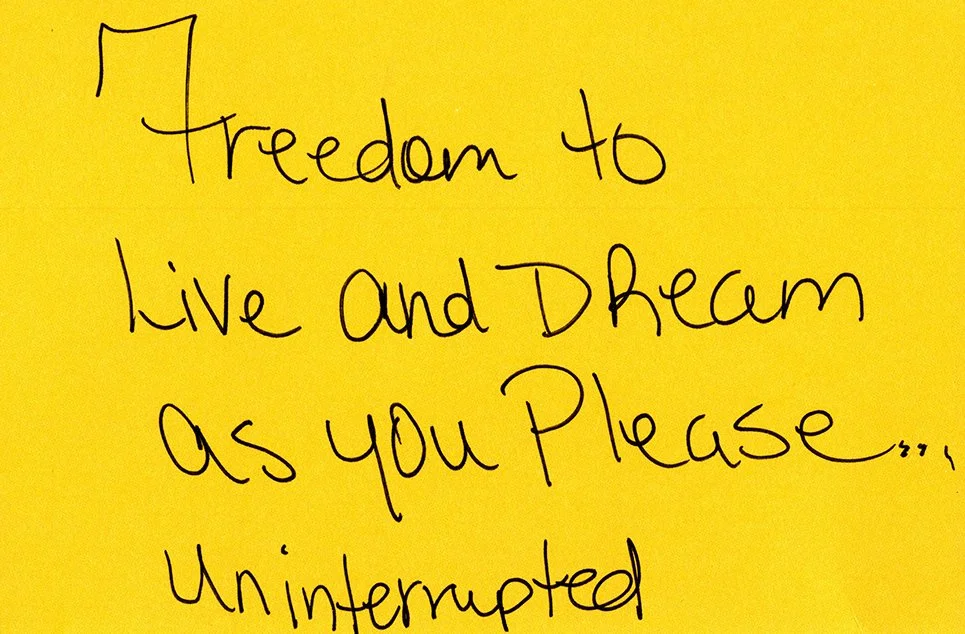 Freedom to
Live and DReam
as you Please...,
Uninterrupted